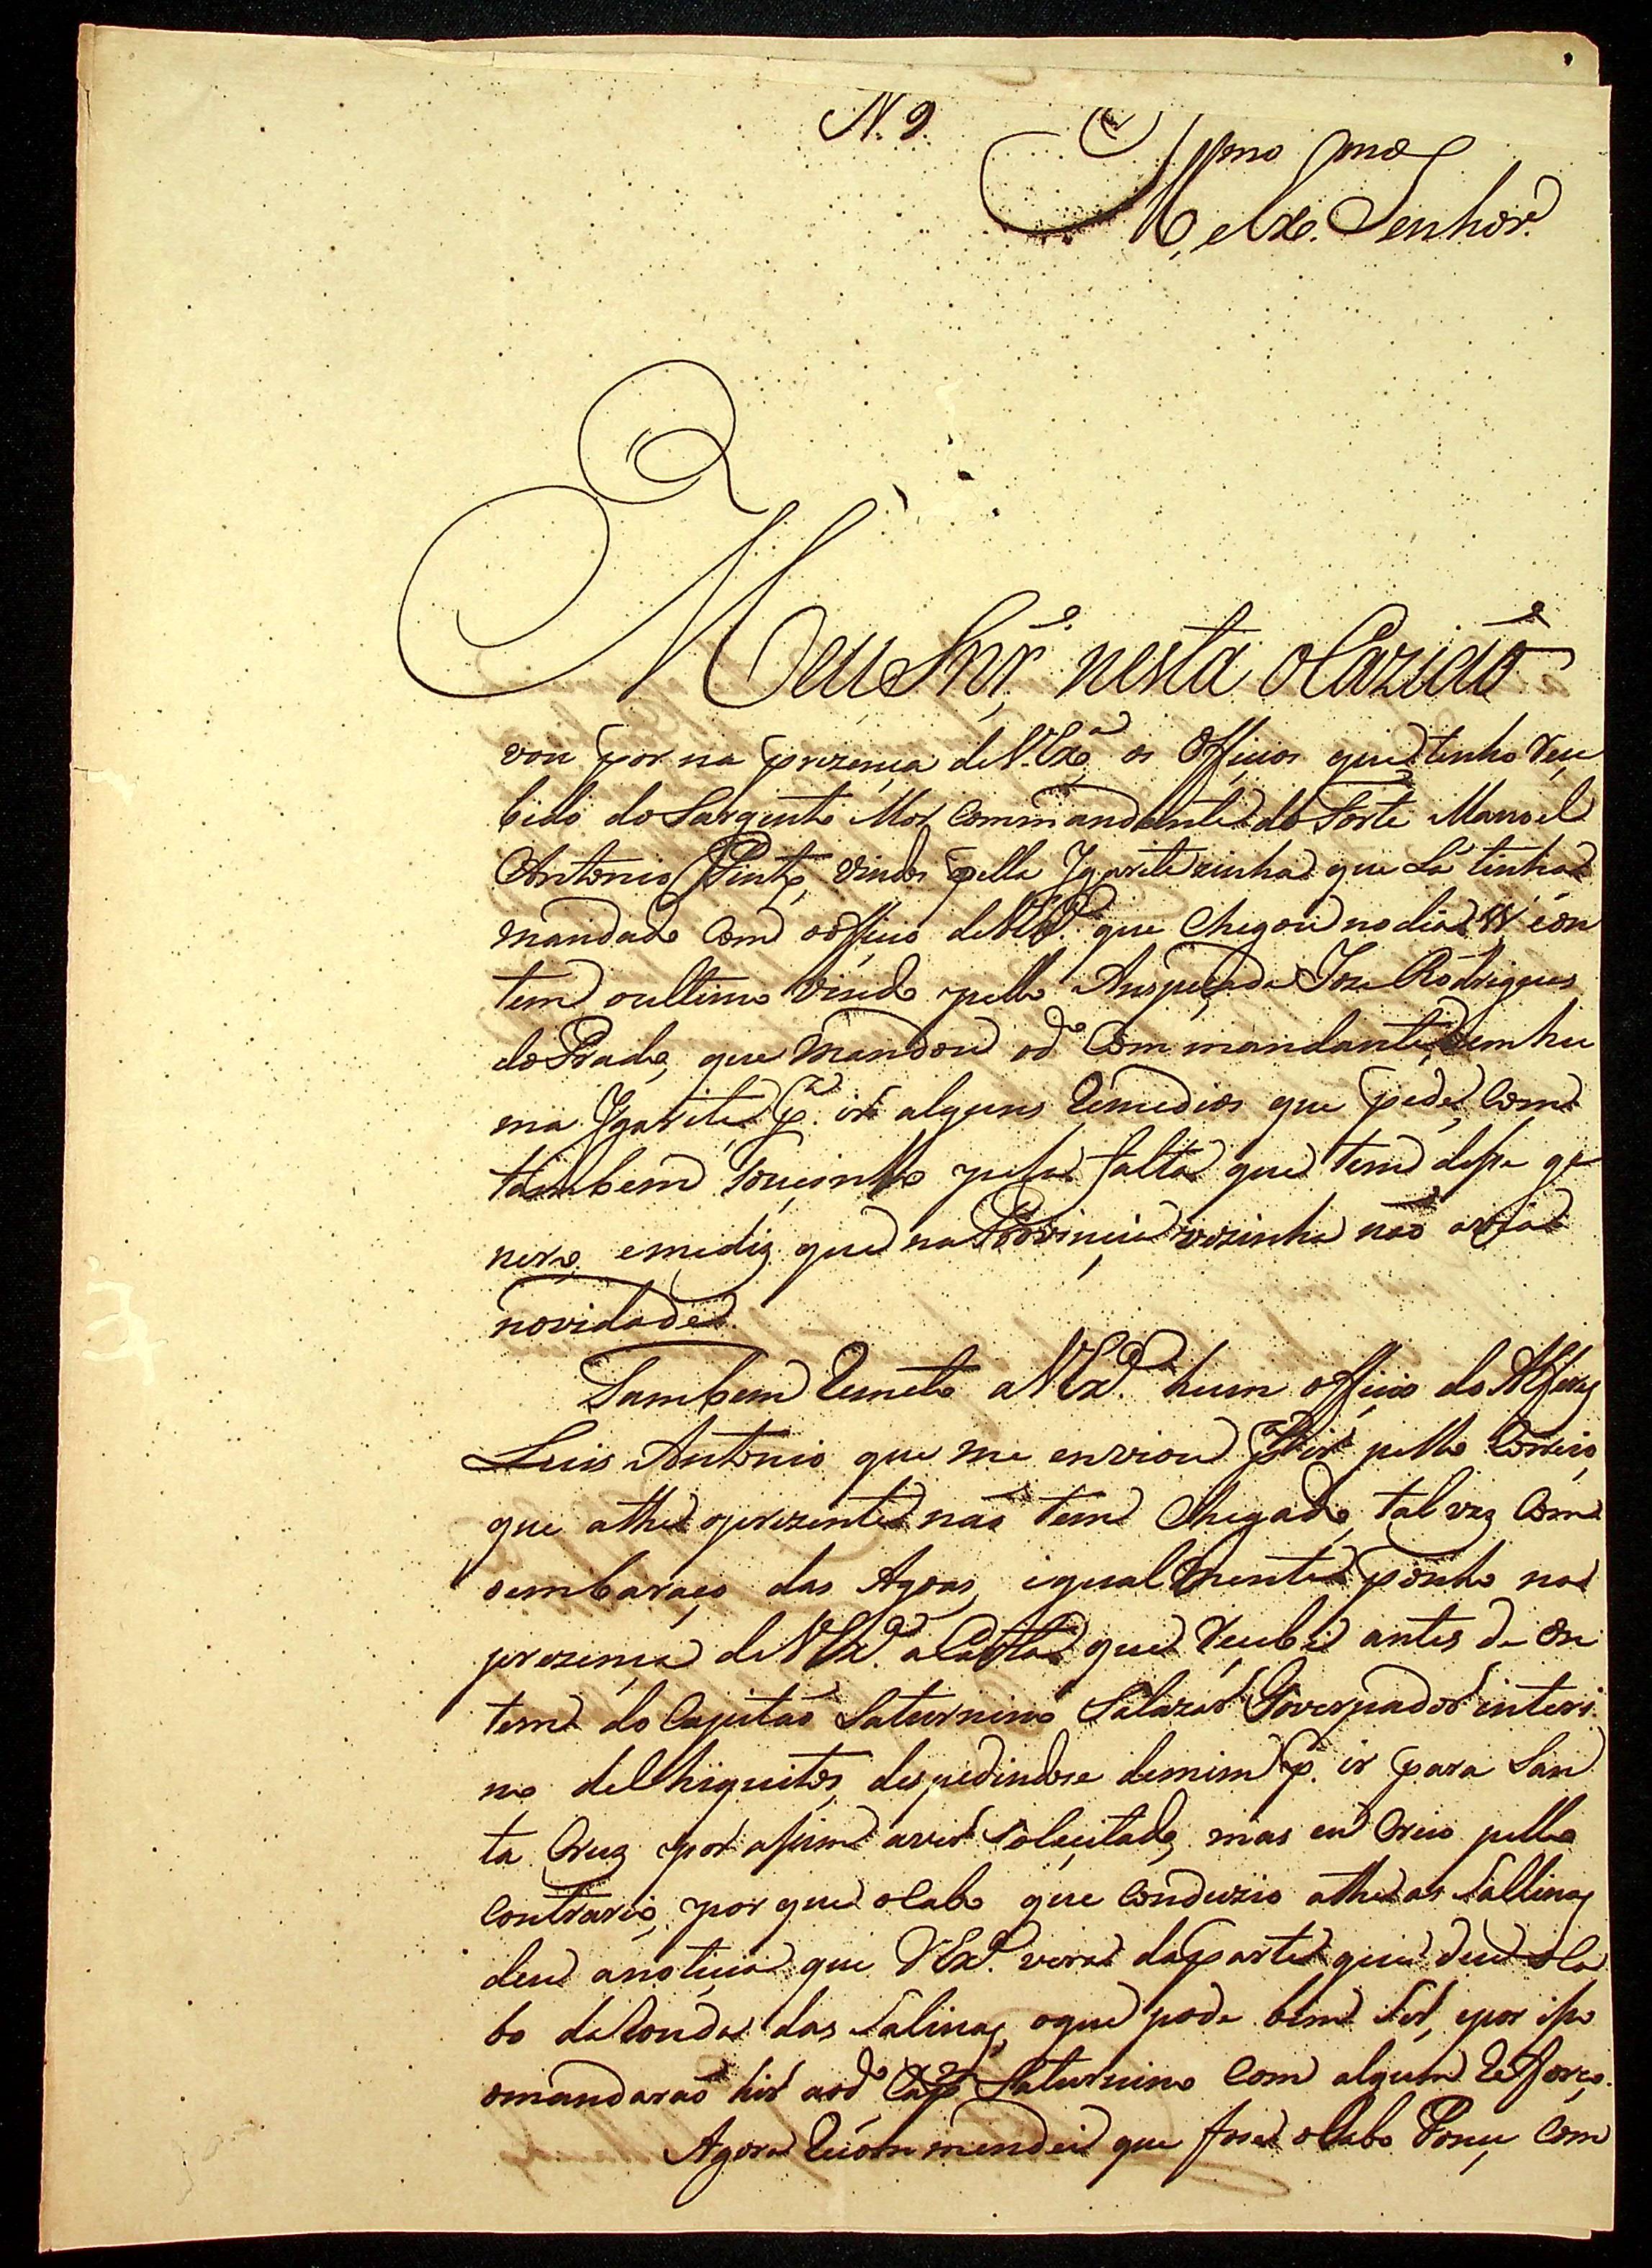 N. 9.
Illmo e Exmo Senhor.
Meu Snr. nesta oCazião
vou por na prezença deV.Exa os Officios que tinha Reçe
bido doSargento Mor Commandante do Forte Manoel
Antonio Pinto, vindos pella Ygaritezinha que Lá tinha
mandado Com oofficio deVExa. que Chegou nodia eon
tem oultimo vindo pello Anspeçada Joze Rodrigues
do Prado, que mandou od.o Commandante, em hu
ma Ygarite pa. ir alguns Remedios que pede, Como
tambem Touçinho pela falta que tem deste ge
nero, emediz que na Provinçia vezinha não avia
novidade.
Tambem Remeto aVExa. hum offiçio do Alferes
Luis Antonio que me enviou pello Correio,
que athe oprezente não tem Chegado, tal vez Com
oembaraço das Agoas, igualmente ponho na
prezença deVExa. aCarta que Reçebi antes de on
tem do Capitão Saturnino Salazar Governador interi
no deChiquitos, despedindose demim pa. ir para San
ta Cruz por asim aver soleçitado, mas eu Creio pello
Contrario, por que oCabo que Conduzio athe as Sallinas
deu anotiçia que VExa. verá daparte que deu oCa
bo daRonda das Salinas, oque pode bem Ser, epor iso
omandarão hir aod.o Capm. Saturnino Com algum Reforço.
Agora Recommendei que fose oCabo Ponçe Com